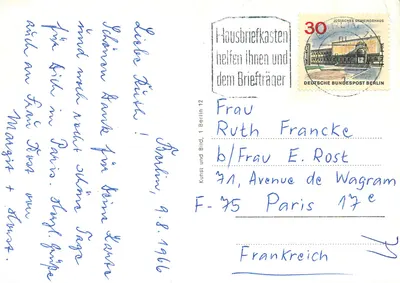 Berlin, 9.8.1966
Liebe Ruth!
Schönen Dank für Deine Karte
und noch recht schöne Tage
für Dich in Paris. Herzl. Grüße
auch an Frau Rost von
Margit + Horst.
Kunst und Bild, 1 Berlin 12
Hausbriefkasten
helfen Ihnen und
dem Briefträger
30
JÜDISCHES GEMEINDEHAUS
DEUTSCHE BUNDESPOST BERLIN
Frau
Ruth Francke
b/Frau E. Rost
71, Avenue de Wagram
F-75 Paris 17e
Frankreich
71